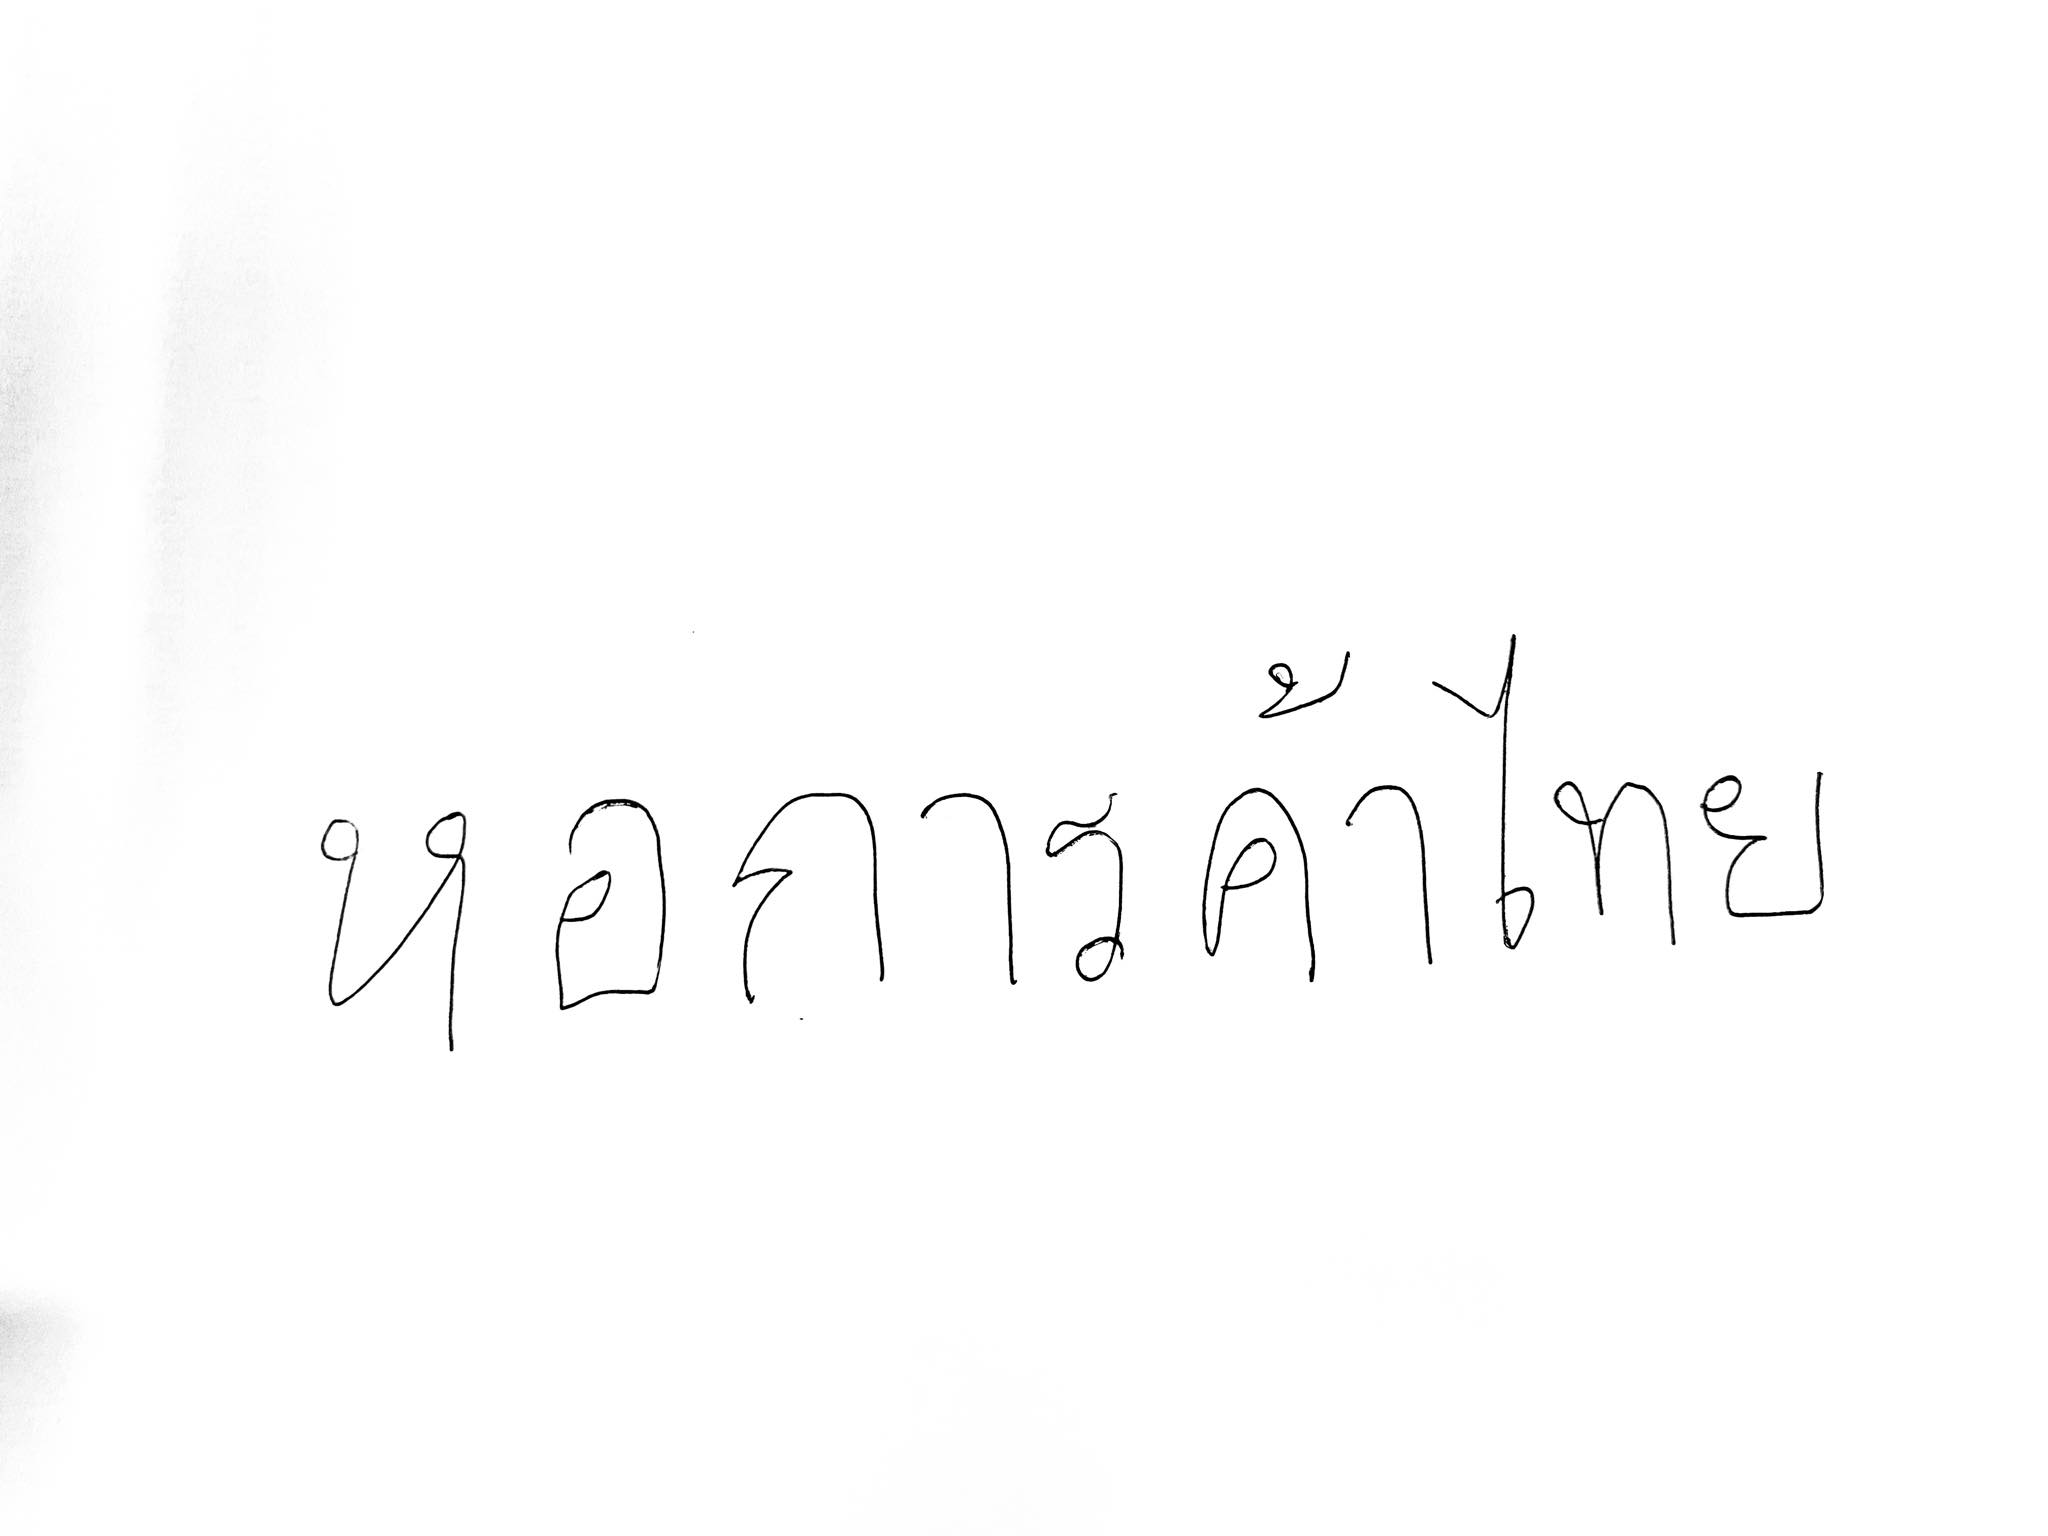 หอการค้าไทย